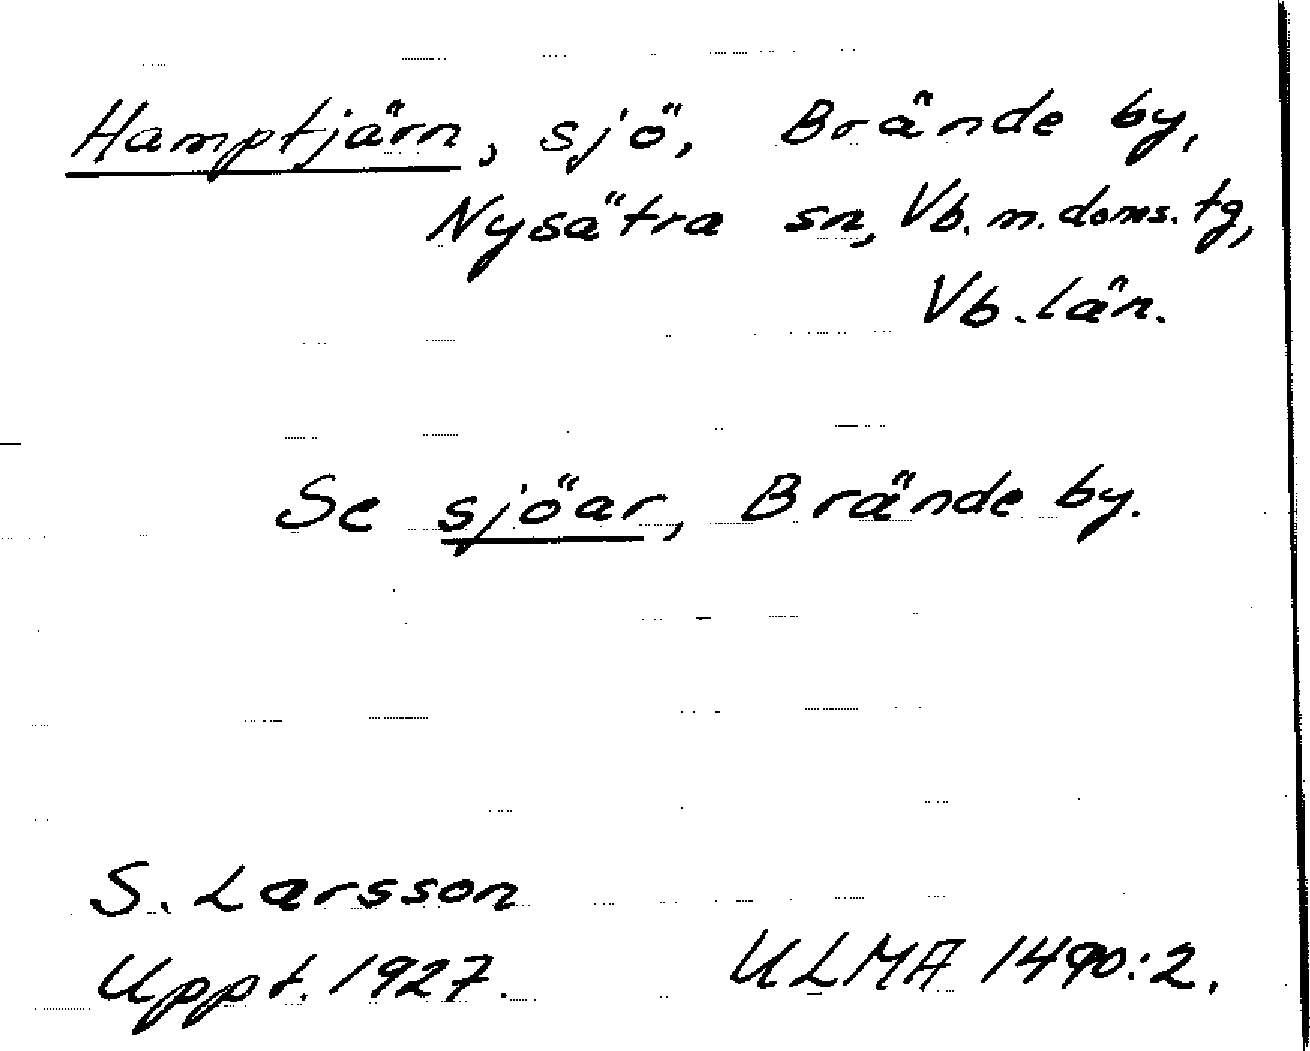 Hamptjärn, sjö, Brände by,
Nysätra sn, Vb. m. doms. tg,
Vb. län.
Se sjöar, Brände by.
S. Larsson
Uppt. 1927.
ULMA 1490:2.